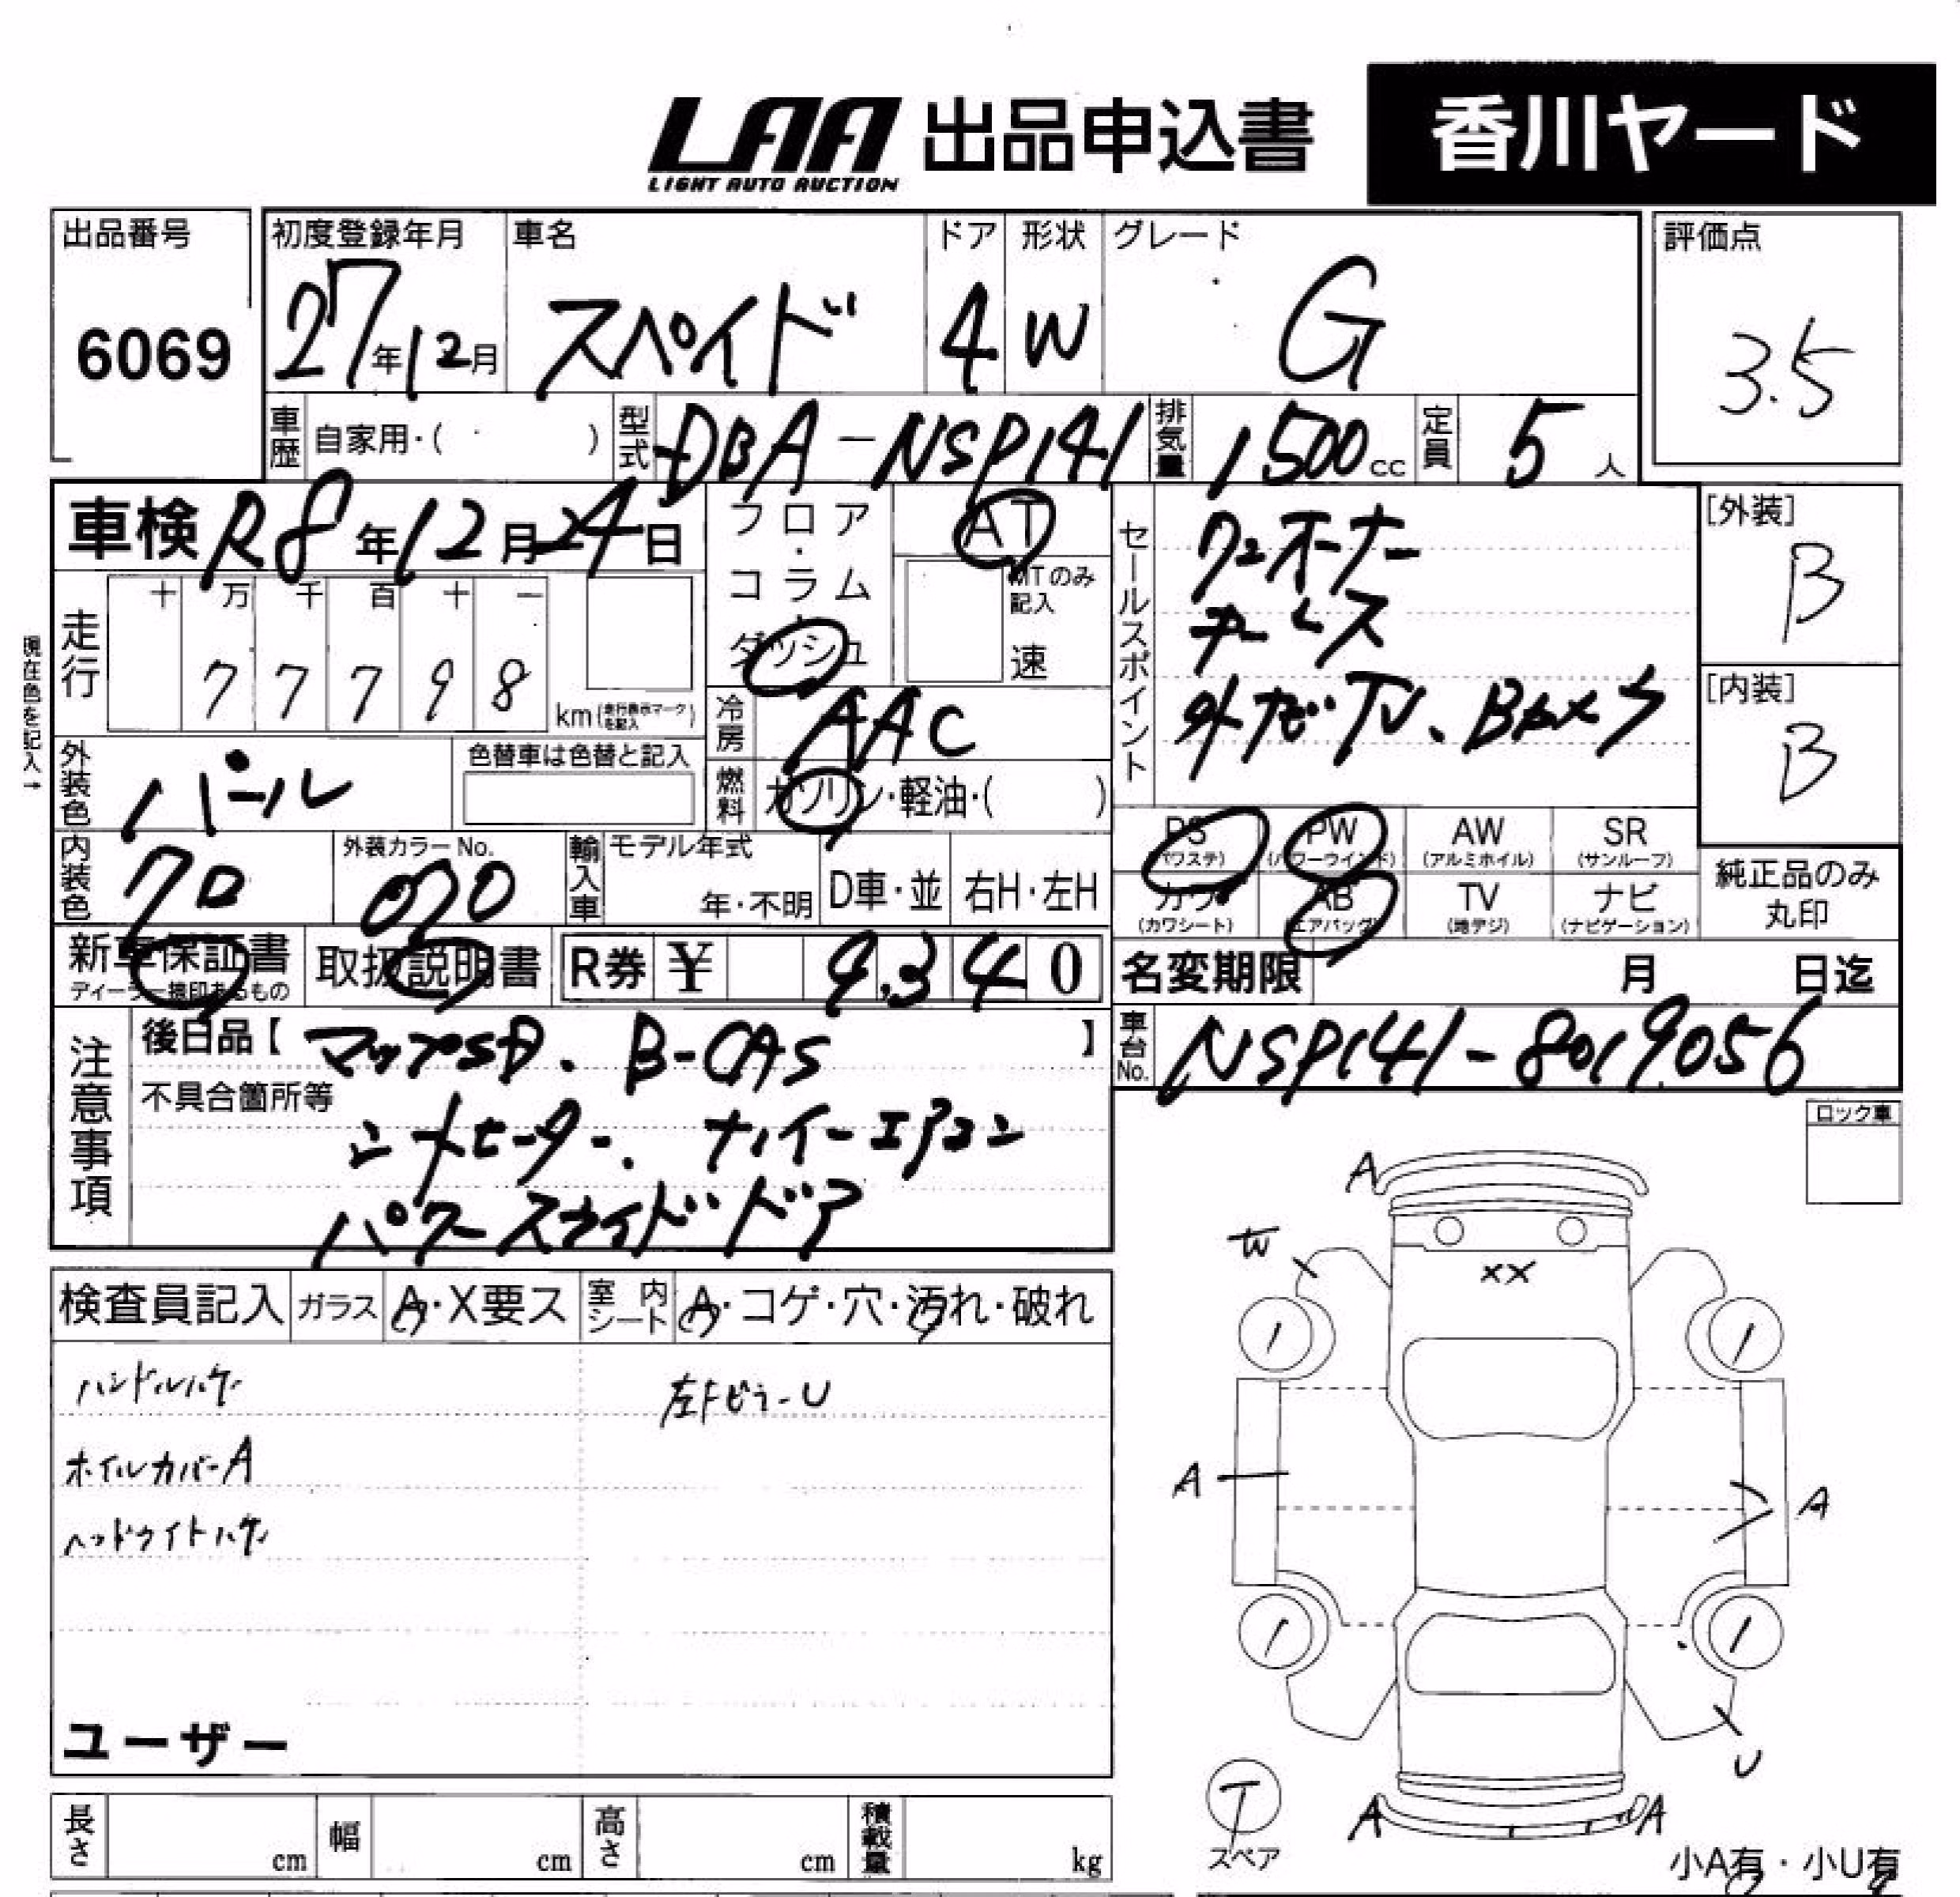 LAA 出品申込書 香川ヤード
LIGHT AUTO AUCTION
出品番号 初度登録年月 車名 ドア 形状 グレード 評価点
6069 27年12月 スペイド 4 W G 3.5
車歴 自家用・( ) 型式 DBA-NSP141 排気量 1500cc 定員 5人
車検 R8年12月24日 フロア・コラム・ダッシュ AT
MTのみ記入 速
セールスポイント ワンオーナー
ナービス
外ナビ・TV、Bカメラ
[外装] B
[内装] B
現在色を記入→
走行 十 万 千 百 十 一
7 7 7 9 8 km(走行表示マークを記入)
冷房 AAC
外装色 パール 色替車は色替と記入
燃料 ガソリン・軽油・( )
PS (パワステ) PW (パワーウインド) AW (アルミホイル) SR (サンルーフ)
カワ (カワシート) AB (エアバッグ) TV (地デジ) ナビ (ナビゲーション)
純正品のみ丸印
内装色 クロ 外装カラーNo. 070 輸入車 モデル年式 年・不明 D車・並 右H・左H
新車保証書 ディーラー捺印あるもの 取扱説明書 R券 ¥ 9,340
名変期限 月 日迄
注意事項 後日品【 マップSD、B-CAS 】
車台No. NSP141-8019056
不具合箇所等
シートヒーター、ナノイーエアコン
パワースライドドア
ロック車
検査員記入 ガラス A・X要ス 室内シート A・コゲ・穴・汚れ・破れ
ハンドルハゲ 左FピラーU
ホイルカバーA
ヘッドライトハゲ
ユーザー
A
W
XX
A
A
U
A
A
T
スペア
小A有・小U有
長さ cm 幅 cm 高さ cm 積載量 kg